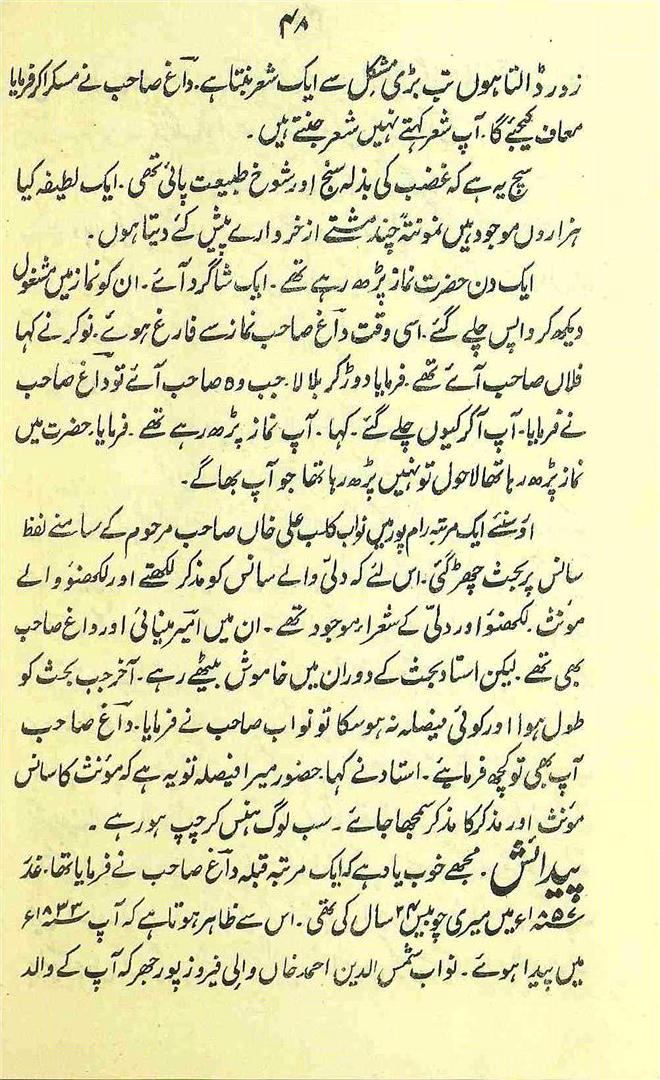 ۴۸
زور ڈالتا ہوں تب بڑی مشکل سے ایک شعر بنتا ہے۔ داغ صاحب نے مسکرا کر فرمایا
معاف کیجئے گا۔ آپ شعر کہتے نہیں شعر جنتے ہیں۔
سچ یہ ہے کہ غضب کی بذلہ سنج اور شوخ طبیعت پائی تھی۔ ایک لطیفہ کیا
ہزاروں موجود ہیں نمونتہً چند مشتے از خروارے پیش کئے دیتا ہوں۔
ایک دن حضرت نماز پڑھ رہے تھے۔ ایک شاگرد آئے۔ ان کو نماز میں مشغول
دیکھ کر واپس چلے گئے۔ اسی وقت داغ صاحب نماز سے فارغ ہوئے۔ نوکر نے کہا
فلاں صاحب آئے تھے۔ فرمایا دوڑ کر بلا لا۔ جب وہ صاحب آئے تو داغ صاحب
نے فرمایا۔ آپ آکر کیوں چلے گئے۔ کہا۔ آپ نماز پڑھ رہے تھے۔ فرمایا۔ حضرت میں
نماز پڑھ رہا تھا لاحول تو نہیں پڑھ رہا تھا جو آپ بھاگے۔
اور سنئے ایک مرتبہ رام پور میں نواب کلب علی خاں صاحب مرحوم کے سامنے لفظ
سانس پر بحث چھڑ گئی۔ اس لئے کہ دلی والے سانس کو مذکر لکھتے اور لکھنؤ والے
مونث۔ لکھنؤ اور دلی کے شعراء موجود تھے۔ ان میں امیر مینائی اور داغ صاحب
بھی تھے۔ لیکن استاد بحث کے دوران میں خاموش بیٹھے رہے۔ آخر جب بحث کو
طول ہوا اور کوئی فیصلہ نہ ہو سکا تو نواب صاحب نے فرمایا۔ داغ صاحب
آپ بھی تو کچھ فرمایئے۔ استاد نے کہا۔ حضور میرا فیصلہ تو یہ ہے کہ مؤنث کا سانس
مؤنث اور مذکر کا مذکر سمجھا جائے۔ سب لوگ ہنس کر چپ ہو رہے۔
پیدائش۔ مجھے خوب یاد ہے کہ ایک مرتبہ قبلہ داغ صاحب نے فرمایا تھا۔ غدر
۱۸۵۷ء میں میری چوبیس ۲۴ سال کی تھی۔ اس سے ظاہر ہوتا ہے کہ آپ ۱۸۳۳ء
میں پیدا ہوئے۔ نواب شمس الدین احمد خاں والی فیروز پور جھرکہ آپ کے والد